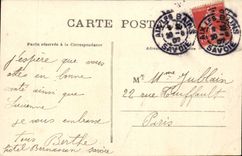 CARTE POSTALE
Partie réservée à la Correspondance
AIX-LES-BAINS
SAVOIE
AIX-LES-BAINS
SAVOIE
j'espère que vous
êtes en bonne
santé ainsi que
je vous embrasse
Berthe
M Mme Jublain
22 rue
Paris